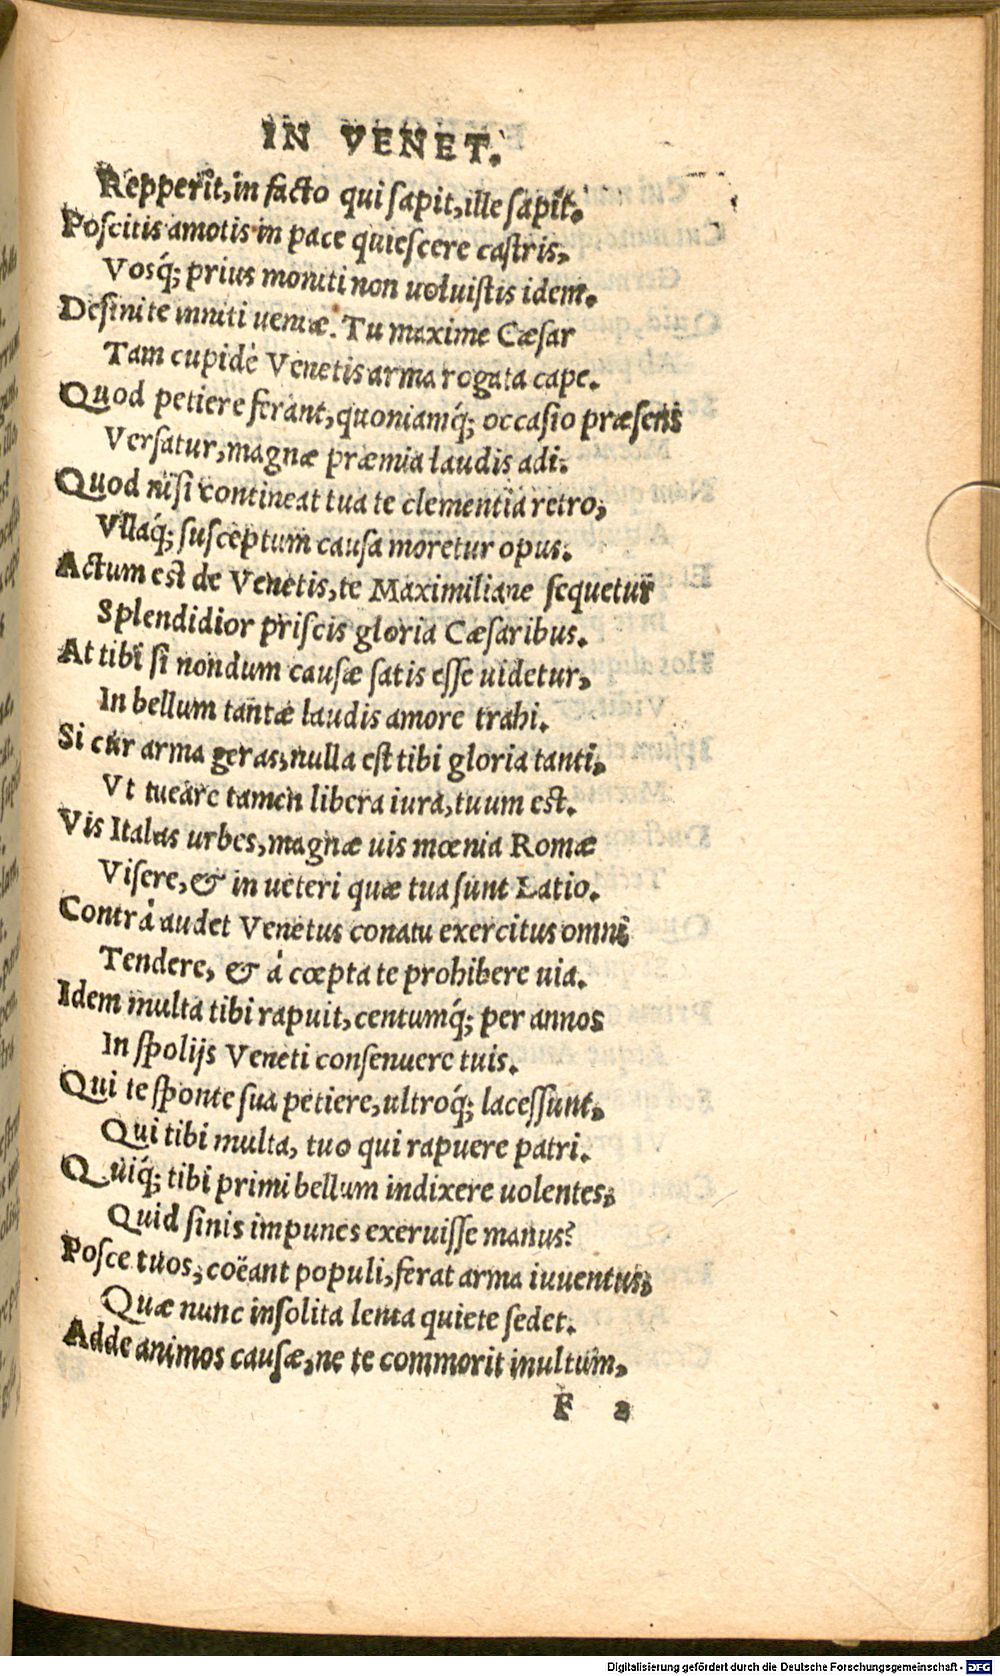 IN VENET.
Repperit, in facto qui sapit, ille sapit.
Poscitis amotis in pace quiescere castris,
Vosq́; prius moniti non uoluistis idem.
Desinite inuiti ueniæ. Tu maxime Cæsar
Tam cupidè Venetis arma rogata cape.
Quod petiere ferant, quoniamq́; occasio præsens
Versatur, magnæ præmia laudis adi.
Quod nisi contineat tua te clementia retro,
Vllaq́; susceptum causa moretur opus.
Actum est de Venetis, te Maximiliane sequetur
Splendidior priscis gloria Cæsaribus.
At tibi si nondum causæ satis esse uidetur,
In bellum tantæ laudis amore trahi.
Si cur arma geras, nulla est tibi gloria tanti,
Vt tueare tamen libera iura, tuum est.
Vis Italas urbes, magnæ uis mœnia Romæ
Visere, & in ueteri quæ tua sunt Latio.
Contrà audet Venetus conatu exercitus omni
Tendere, & à cœpta te prohibere uia.
Idem multa tibi rapuit, centumq́; per annos
In spolijs Veneti consenuere tuis.
Qui te sponte sua petiere, ultroq́; lacessunt,
Qui tibi multa, tuo qui rapuere patri.
Quiq́; tibi primi bellum indixere uolentes,
Quid sinis impunes exeruisse manus?
Posce tuos, coëant populi, ferat arma iuuentus,
Quæ nunc insolita lenta quiete sedet.
Adde animos causæ, ne te commorit inultum,
F 2
Digitalisierung gefördert durch die Deutsche Forschungsgemeinschaft - DFG